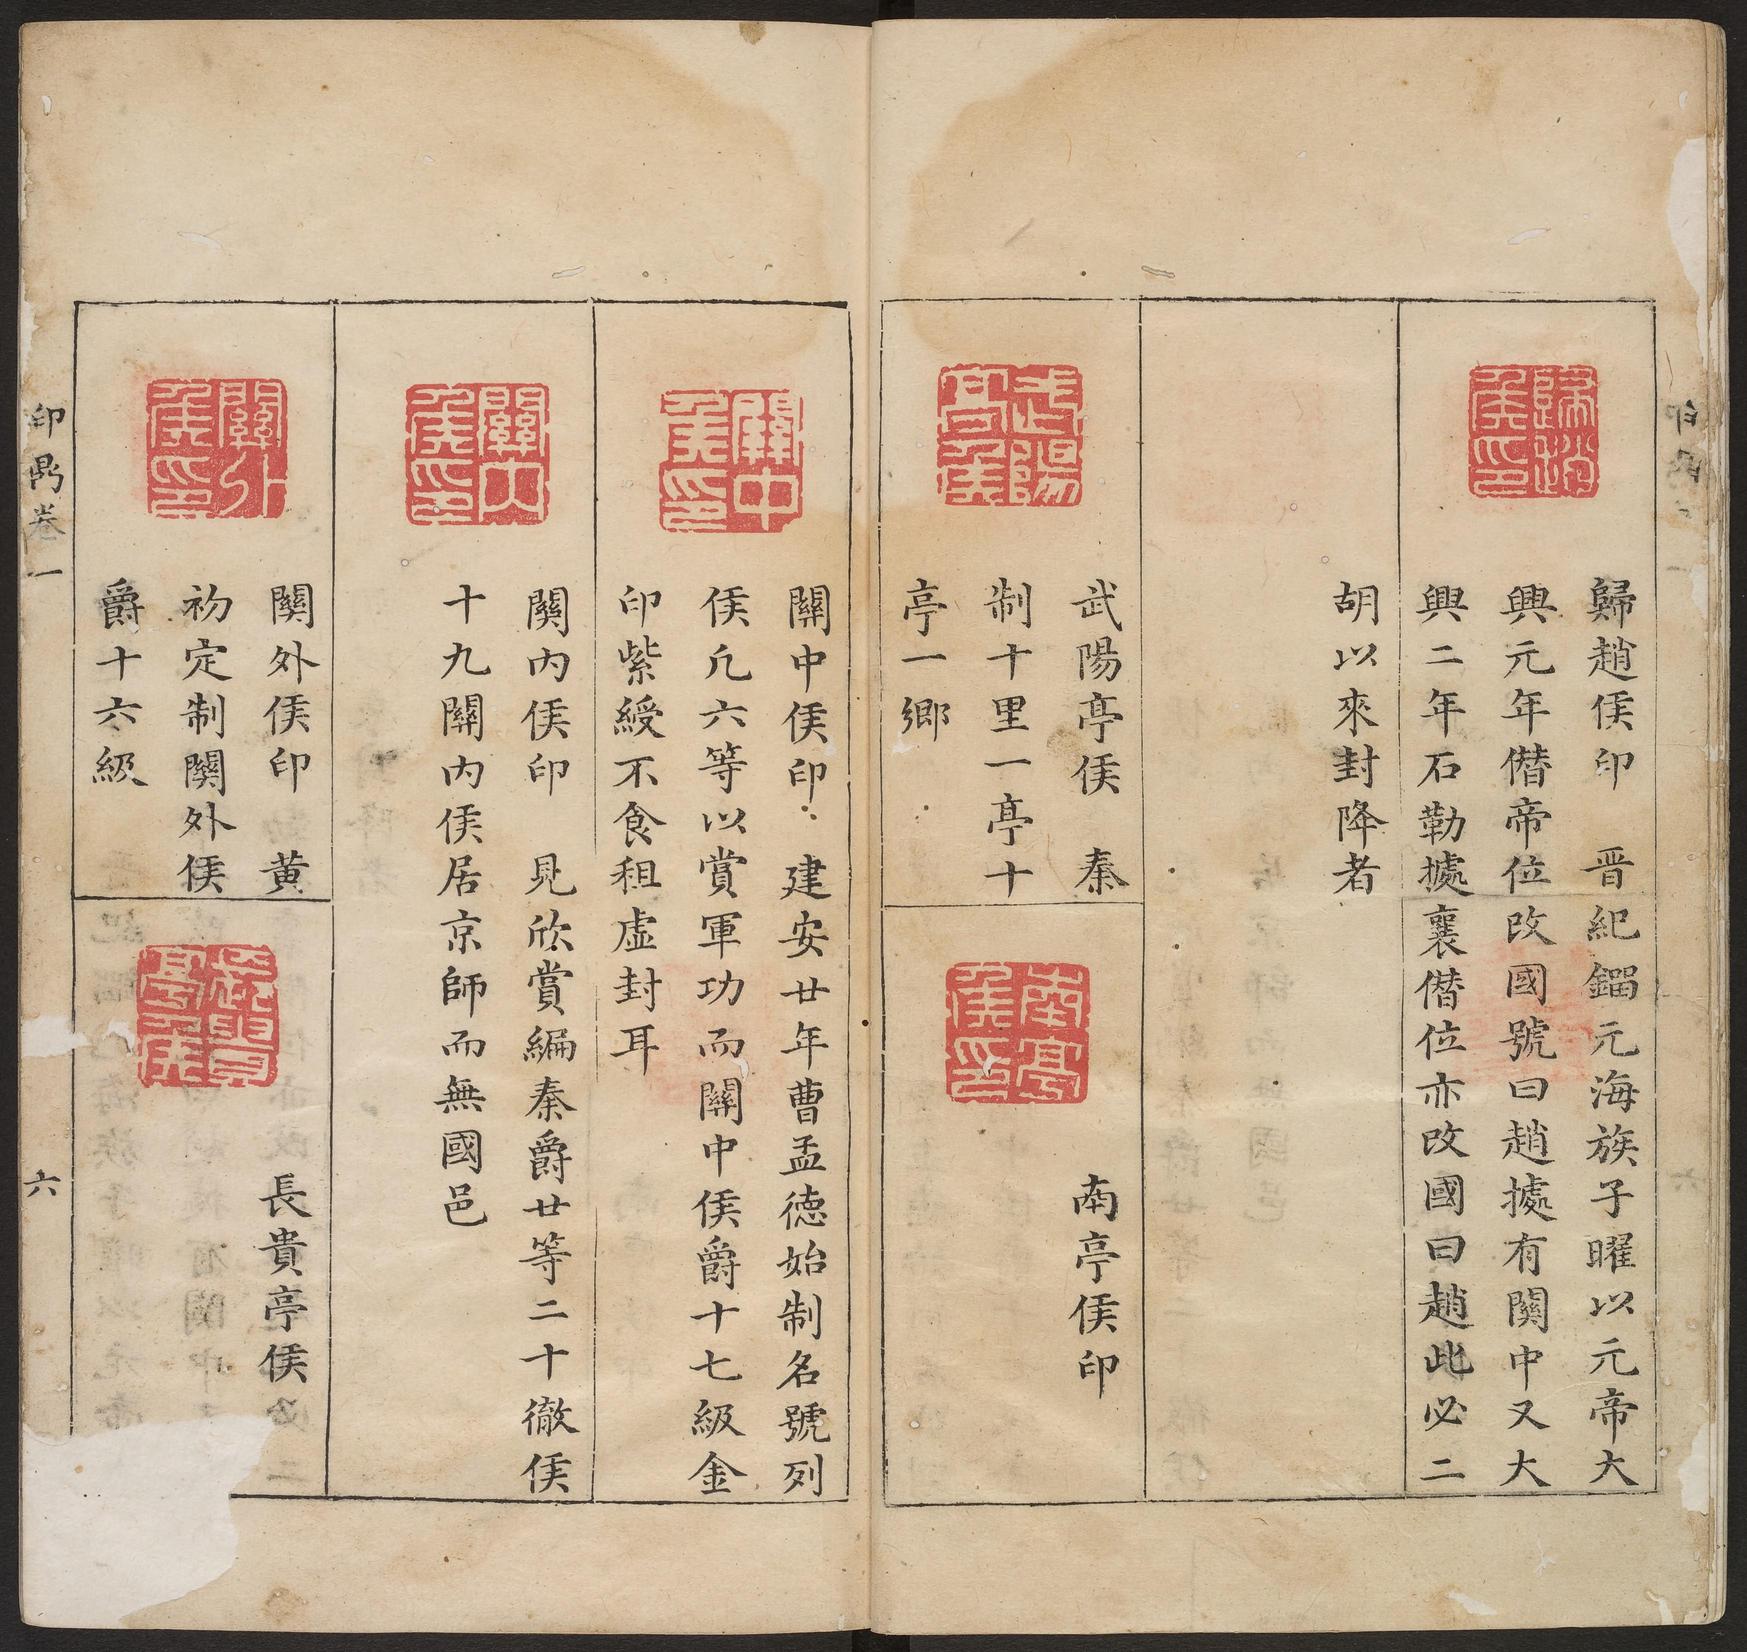 歸趙侯印
歸趙侯印　晋紀鎦元海族子曜以元帝大
興元年僣帝位改國號曰趙㩀有関中又大
興二年石勒㩀襄僣位亦改國曰趙此必二
胡以來封降者
武陽亭侯
武陽亭侯　秦
制十里一亭十
亭一鄉
南亭侯印
南亭侯印
關中侯印
關中侯印　建安廿年曹孟德始制名號列
侯凡六等以賞軍功而關中侯爵十七級金
印紫綬不食租虛封耳
關內侯印
関内侯印　見欣賞編秦爵廿等二十徹侯
十九關内侯居京師而無國邑
關外侯印
関外侯印　黄
初定制関外侯
爵十六級
長貴亭侯
長貴亭侯
印鼎卷一
六